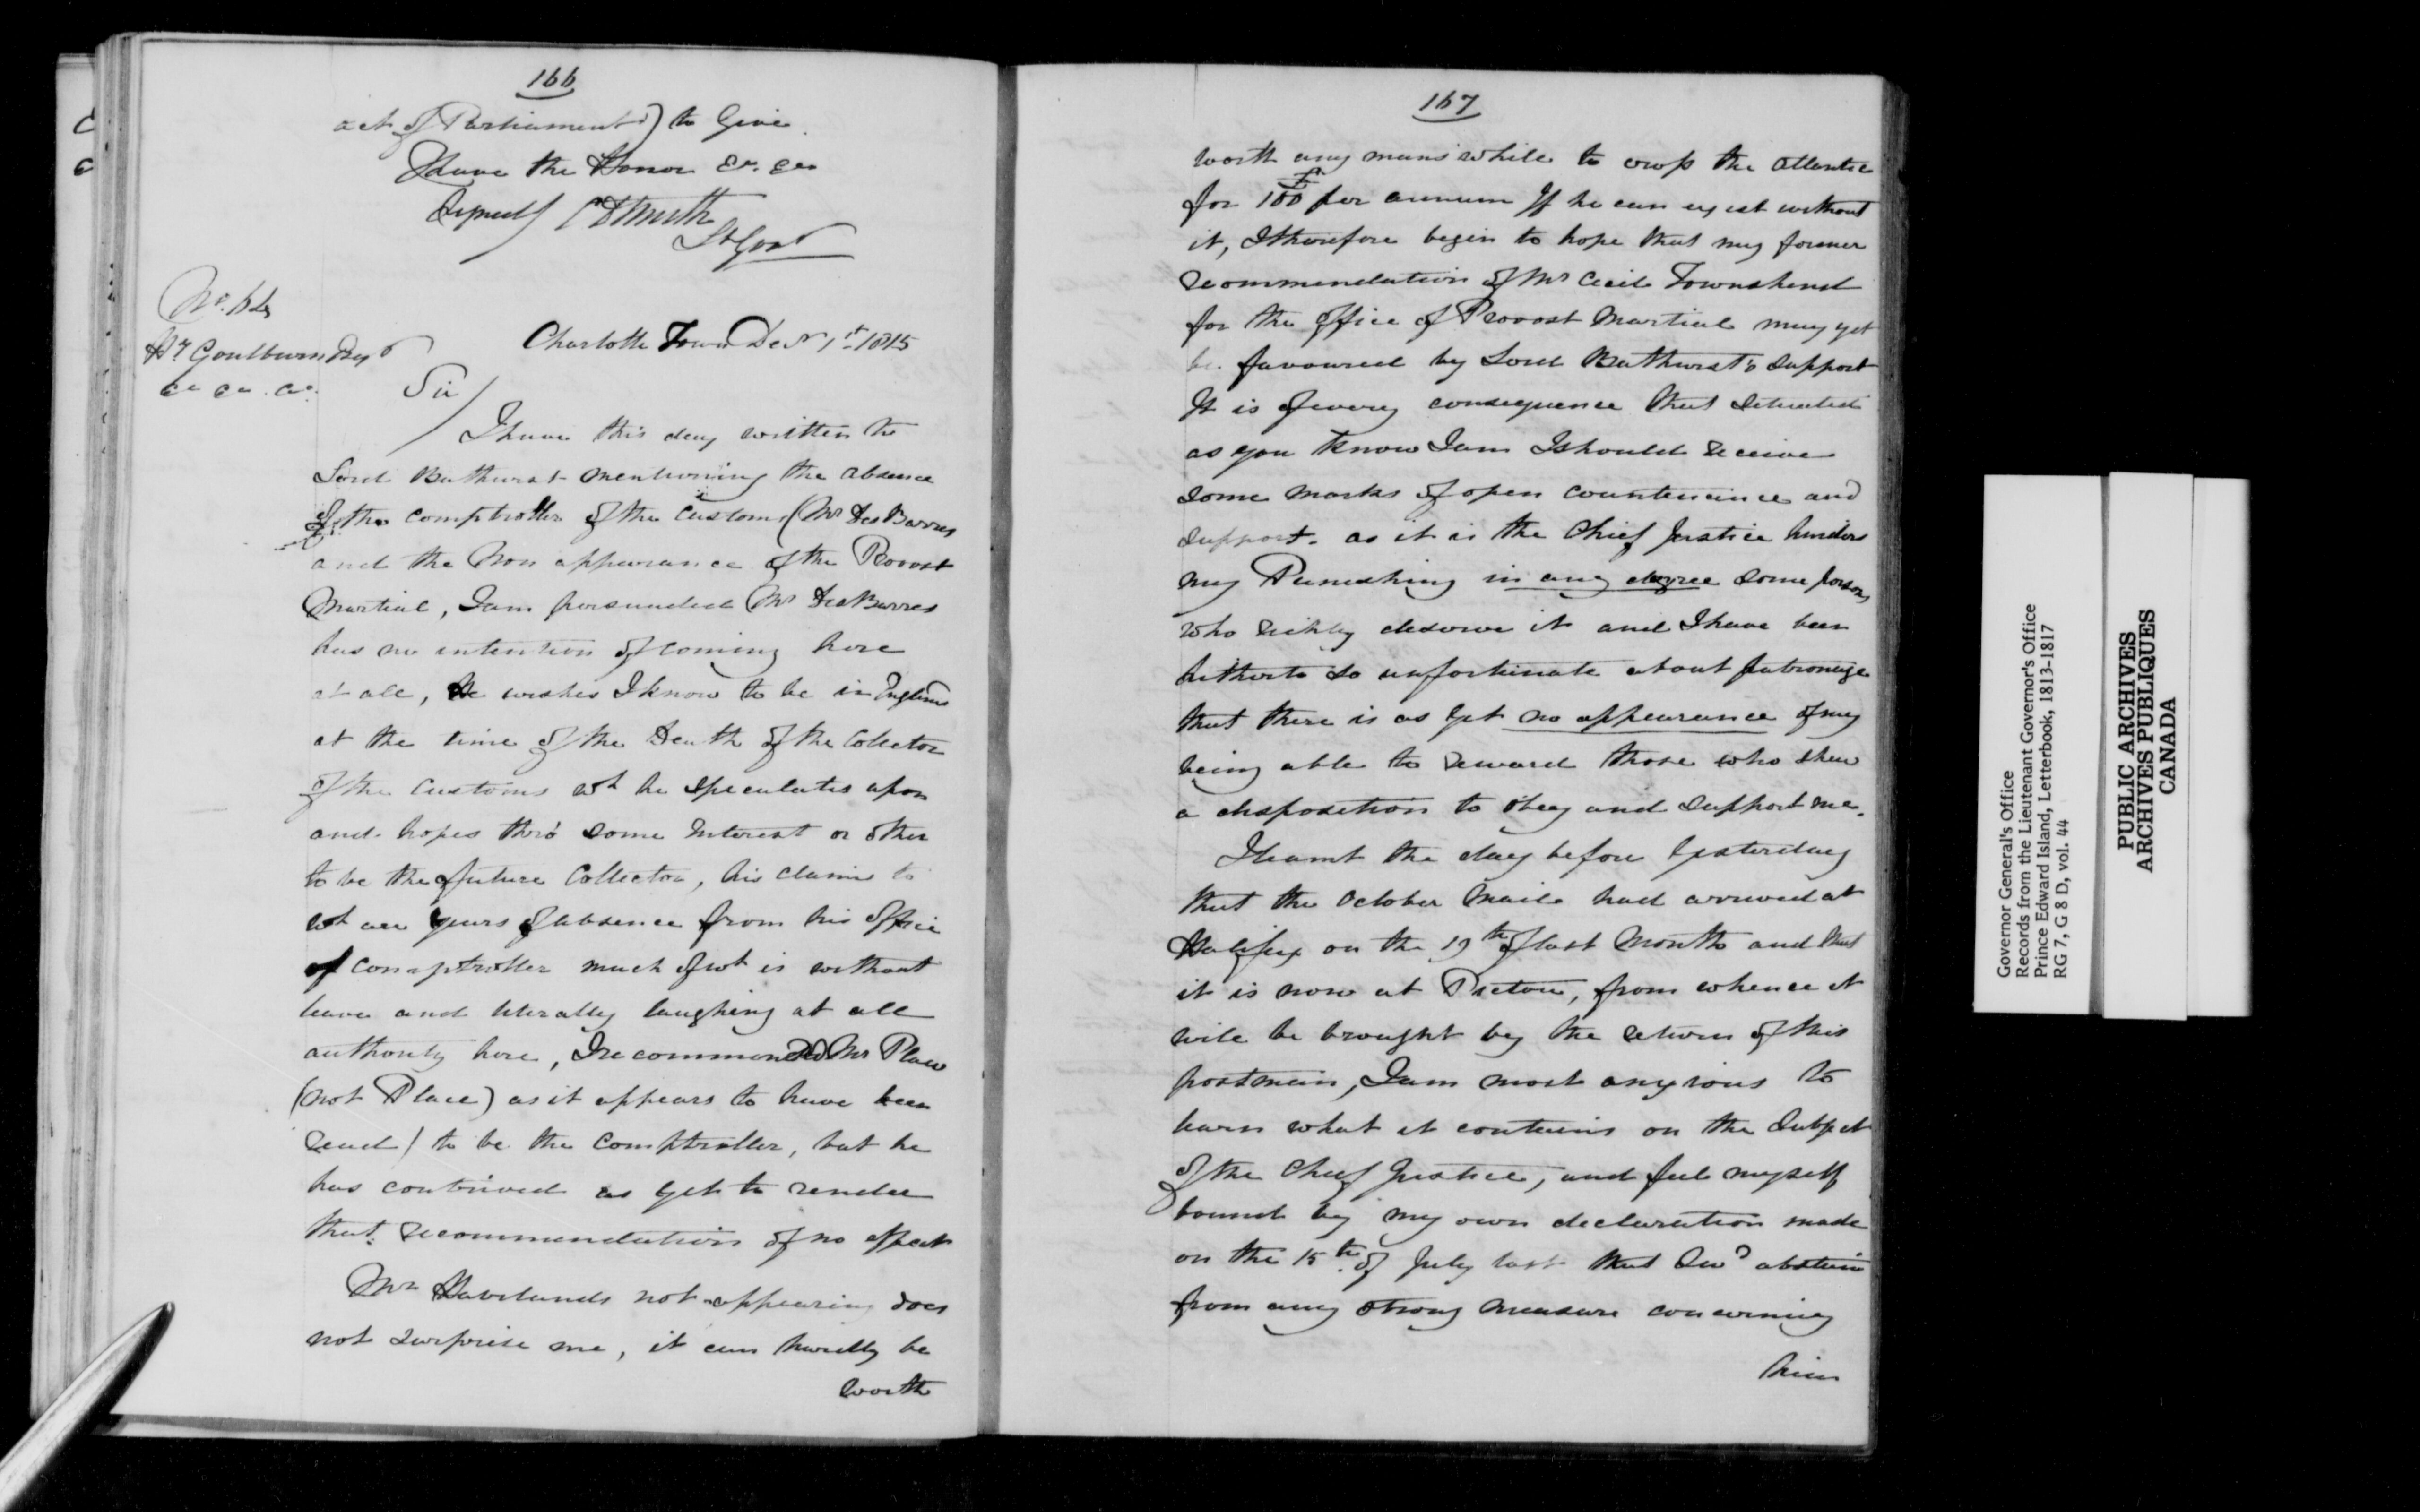 166
act of Parliament) to Give
I have the Honor &c. &c.
Signed/ C D Smith
Lt Govr
No. 64
Hy Goulburn Esqr
&c &c. &c.
Charlotte Town Decr 1st 1815
Sir/
I have this day written to
Lord Bathurst mentioning the absence
of the Comptroller of the Customs (Mr DesBarres
and the Non appearance of the Provost
Martial, I am persuaded Mr DesBarres
has no intention of coming here
at all, He wishes I know to be in England
at the time of the Death of the Collector
of the Customs wh he speculates upon
and hopes thro' some Interest or other
to be the future Collector, his claim to
wh are years of absence from his office
of Comptroller much of wh is without
leave and literally laughing at all
authority here, I recommended Mr Plaw
(not Place) as it appears to have been
read) to be the Comptroller, but he
has contrived as yet to render
that recommendation of no effect
Mr Havilands not appearing does
not surprise me, it can hardly be
worth
167
worth any mans while to cross the atlantic
for 100£ per annum If he can exist without
it, I therefore begin to hope that my former
recommendation of Mr Cecil Townshend
for the office of Provost Martial may yet
be favoured by Lord Bathurst's support
It is of every consequence that situated
as you know I am I should receive
some marks of open countenance and
support. as it is the Chief Justice hinders
my Punishing in any degree some persons
who richly deserve it and I have been
hitherto so unfortunate about patronage
that there is as yet no appearance of my
being able to reward those who shew
a disposition to obey and support me.
I learnt the day before yesterday
that the October Mail had arrived at
Halifax on the 19th of last Month and that
it is now at Pictou, from whence it
will be brought by the return of this
postman, I am most anxious to
learn what it contains on the subject
of the Chief Justice, and feel myself
bound by my own declaration made
on the 15th of July last that I wd abstain
from any strong measure concerning
him
Governor General's Office
Records from the Lieutenant Governor's Office
Prince Edward Island, Letterbook, 1813-1817
RG 7, G 8 D, vol. 44
PUBLIC ARCHIVES
ARCHIVES PUBLIQUES
CANADA